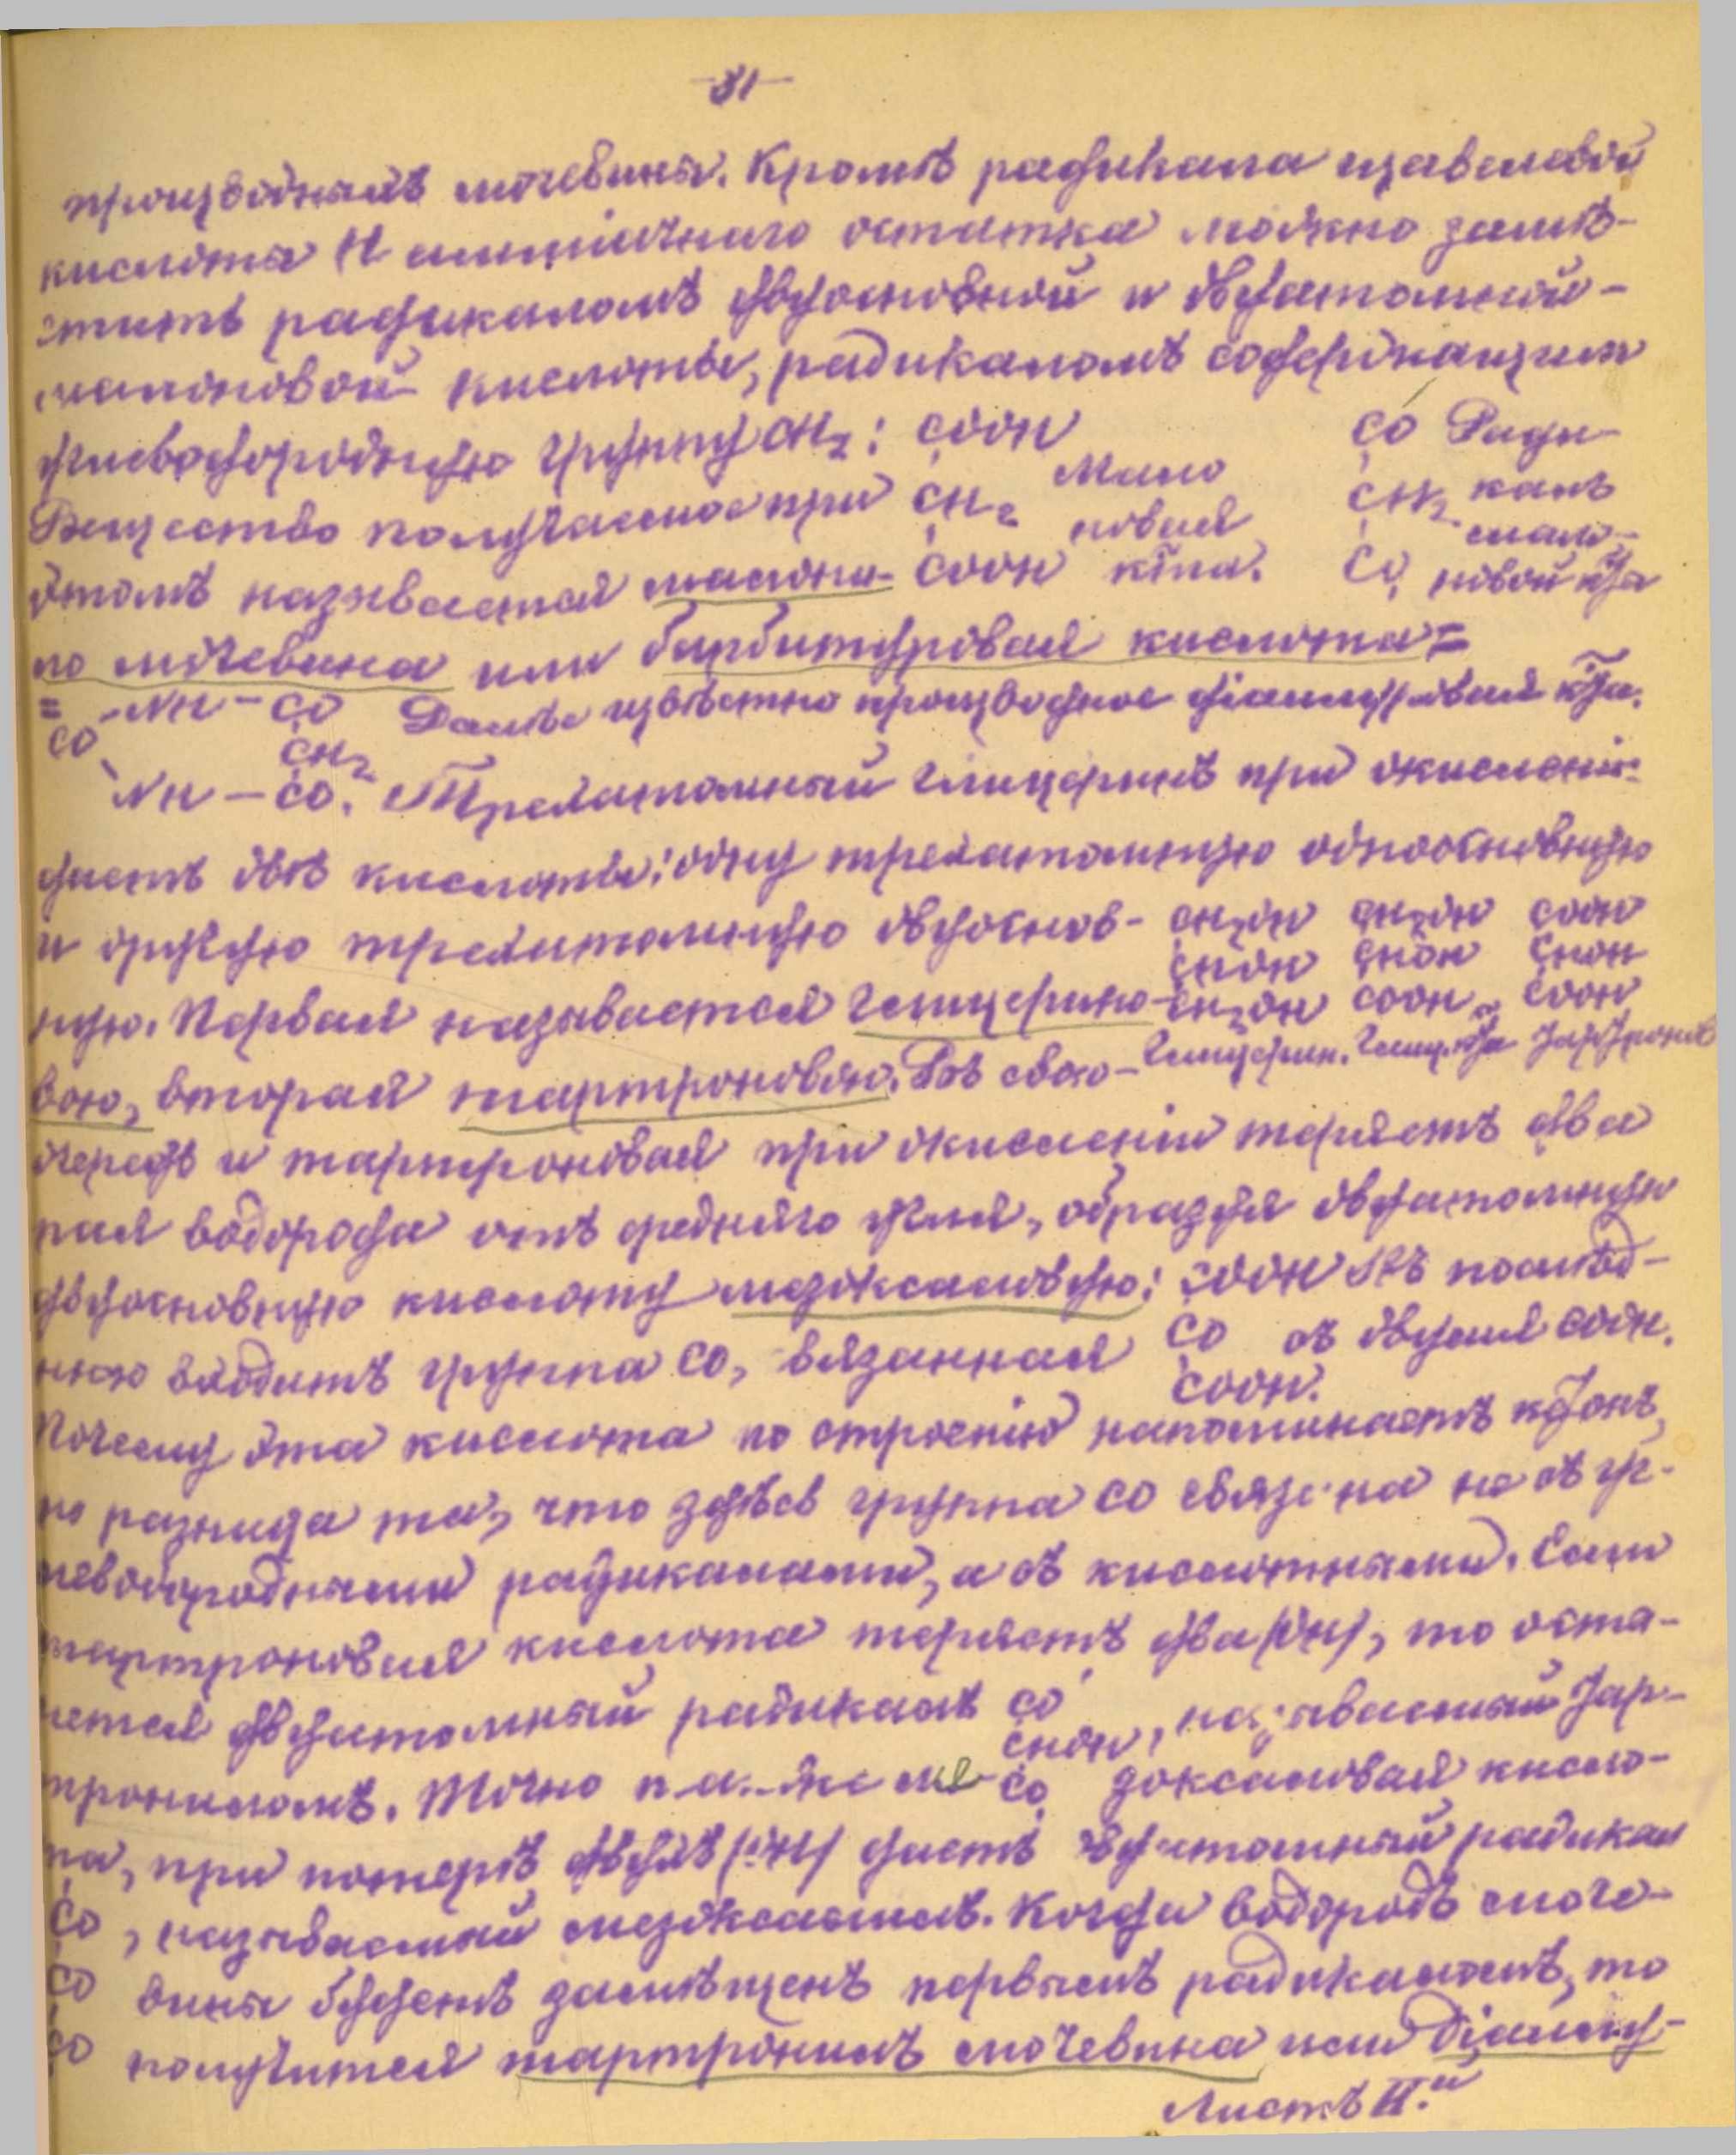 -81-
производнымъ мочевины. Кромѣ радикала щавелевой
кислоты H амміачнаго остатка можно замѣ-
стить радикаломъ двуосновной и двуатомной-
малоновой кислоты, радикаломъ содержащим
углеводородную группу CH2: COOH CO Ради-
Вещество получаемое при CH2 Мало CH2 калъ
новая мало-
этомъ называется малони- COOH к̃та. CO новой к̃ты
ло мочевина или барбитуровая кислота=
= NH - CO Далѣе извѣстно производное діалуровая к̃та.
CO CH2
NH - CO. Трехатомный глицеринъ при окисленіи
даетъ двѣ кислоты: одну трехатомную одноосновную
и другую трехатомную двуоснов- CH2OH CH2OH COOH
CHOH CHOH CHOH
ную. Первая называется глицерино- CH2OH COOH COOH
вою, вторая тартроновою. Въ свою- Глицерин. Глиц. к̃та Тартронов
очередь и тартроновая при окисленіи теряетъ два
пая водорода отъ средняго угля, образуя двуатомную
двуосновную кислоту мезоксаловую: COOH Въ послѣд-
нюю входитъ группа CO, связанная CO съ двумя COOH.
COOH.
Почему эта кислота по строенію напоминаетъ кетонъ,
но разница та, что здѣсь группа CO связана не съ уг-
леводородными радикалами, а съ кислотными. Если
тартроновая кислота теряетъ два (OH), то оста-
нется двуатомный радикалъ CO, называемый Тар-
CHOH,
трониломъ. Точно так же ме- CO зоксаловая кисло-
та, при потерѣ двухъ (OH) даетъ двуатомный радикал
CO, называемый мезоксалилъ. Когда водородъ моче-
CO вины будетъ замѣщенъ первымъ радикаломъ, то
CO получится тартронилъ мочевина или діалу-
Листъ II.й